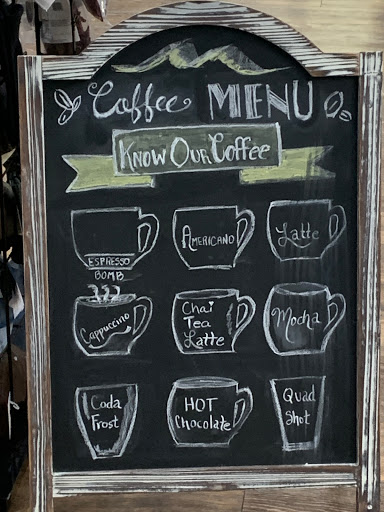 Coffee MENU
KNOW OUR COFFEE
ESPRESSO
BOMB
AMERICANO
Latte
Cappuccino
Chai
Tea
Latte
Mocha
Coda
Frost
HOT
Chocolate
QUAD
SHOT